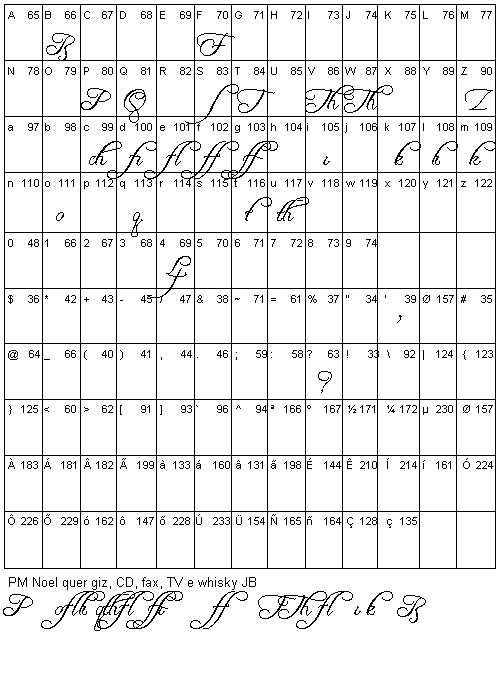 A 65 B 66 C 67 D 68 E 69 F 70 G 71 H 72 I 73 J 74 K 75 L 76 M 77
N 78 O 79 P 80 Q 81 R 82 S 83 T 84 U 85 V 86 W 87 X 88 Y 89 Z 90
a 97 b 98 c 99 d 100 e 101 f 102 g 103 h 104 i 105 j 106 k 107 l 108 m 109
n 110 o 111 p 112 q 113 r 114 s 115 t 116 u 117 v 118 w 119 x 120 y 121 z 122
0 48 1 66 2 67 3 68 4 69 5 70 6 71 7 72 8 73 9 74
$ 36 * 42 + 43 - 45 / 47 & 38 ~ 71 = 61 % 37 " 34 ' 39 Ø 157 # 35
@ 64 _ 66 ( 40 ) 41 , 44 . 46 ; 59 : 58 ? 63 ! 33 \ 92 | 124 { 123
} 125 < 60 > 62 [ 91 ] 93 ` 96 ^ 94 ª 166 º 167 ½ 171 ¼ 172 µ 230 Ø 157
À 183 Á 181 Â 182 Ã 199 à 133 á 160 â 131 ã 198 É 144 Ê 210 Í 214 í 161 Ó 224
Ô 226 Õ 229 ó 162 ô 147 õ 228 Ú 233 Ü 154 Ñ 165 ñ 164 Ç 128 ç 135
PM Noel quer giz, CD, fax, TV e whisky JB